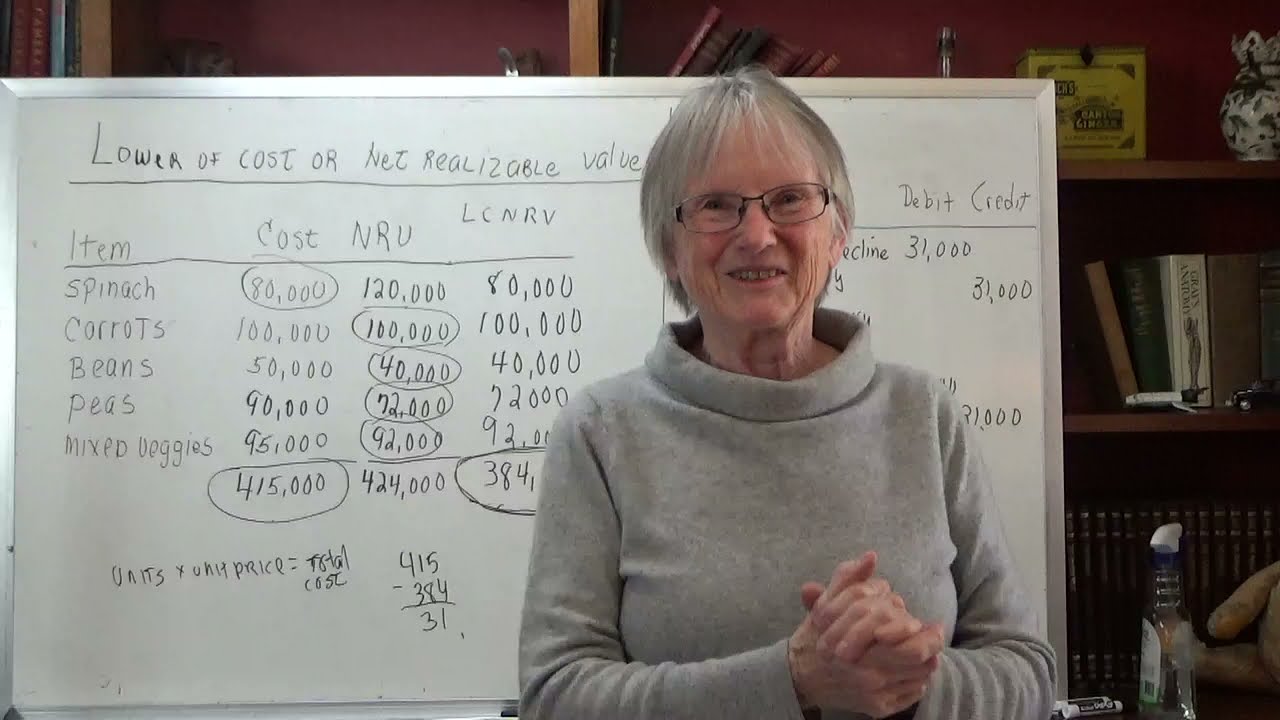 LOWER OF COST OR NET REALIZABLE VALUE
Debit Credit
Item Cost NRV LCNRV
Spinach 80,000 120,000 80,000
Carrots 100,000 100,000 100,000
Beans 50,000 40,000 40,000
Peas 90,000 72,000 72000
MIXED Veggies 95,000 92,000 92,00
415,000 424,000 384,
UNITS × UNIT PRICE = Total
cost
415
- 384
31
ecline 31,000
y 31,000
31,000
GRAY'S
ANATOMY
CANTON
GINGER